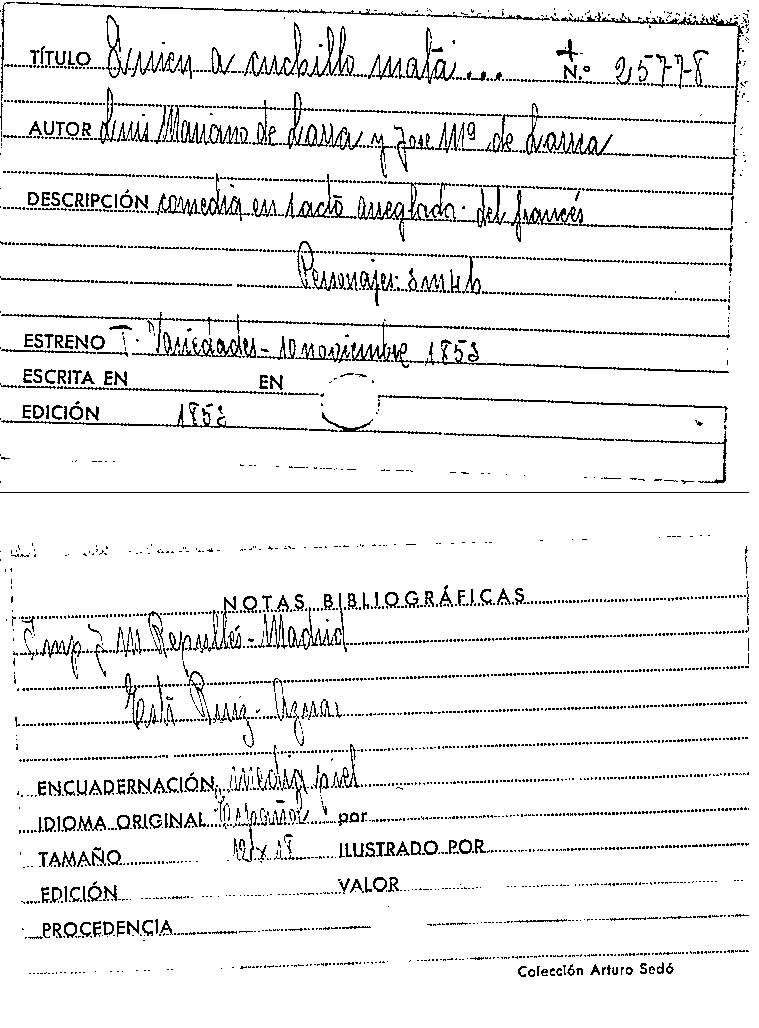 TÍTULO Quien a cuchillo mata... + N.º 2577-8
AUTOR Luis Mariano de Larra y Jose Mª de Larra
DESCRIPCIÓN comedia en 1 acto arreglada del francés
Personajes: 3m4h
ESTRENO T. Variedades - 10 noviembre 1853
ESCRITA EN EN
EDICIÓN 1853
NOTAS BIBLIOGRÁFICAS
Imp J M Repullés - Madrid
Está Ruiz - Aznar
ENCUADERNACIÓN media piel
IDIOMA ORIGINAL Español por
TAMAÑO 12 x 18 ILUSTRADO POR
EDICIÓN VALOR
PROCEDENCIA
Colección Arturo Sedó